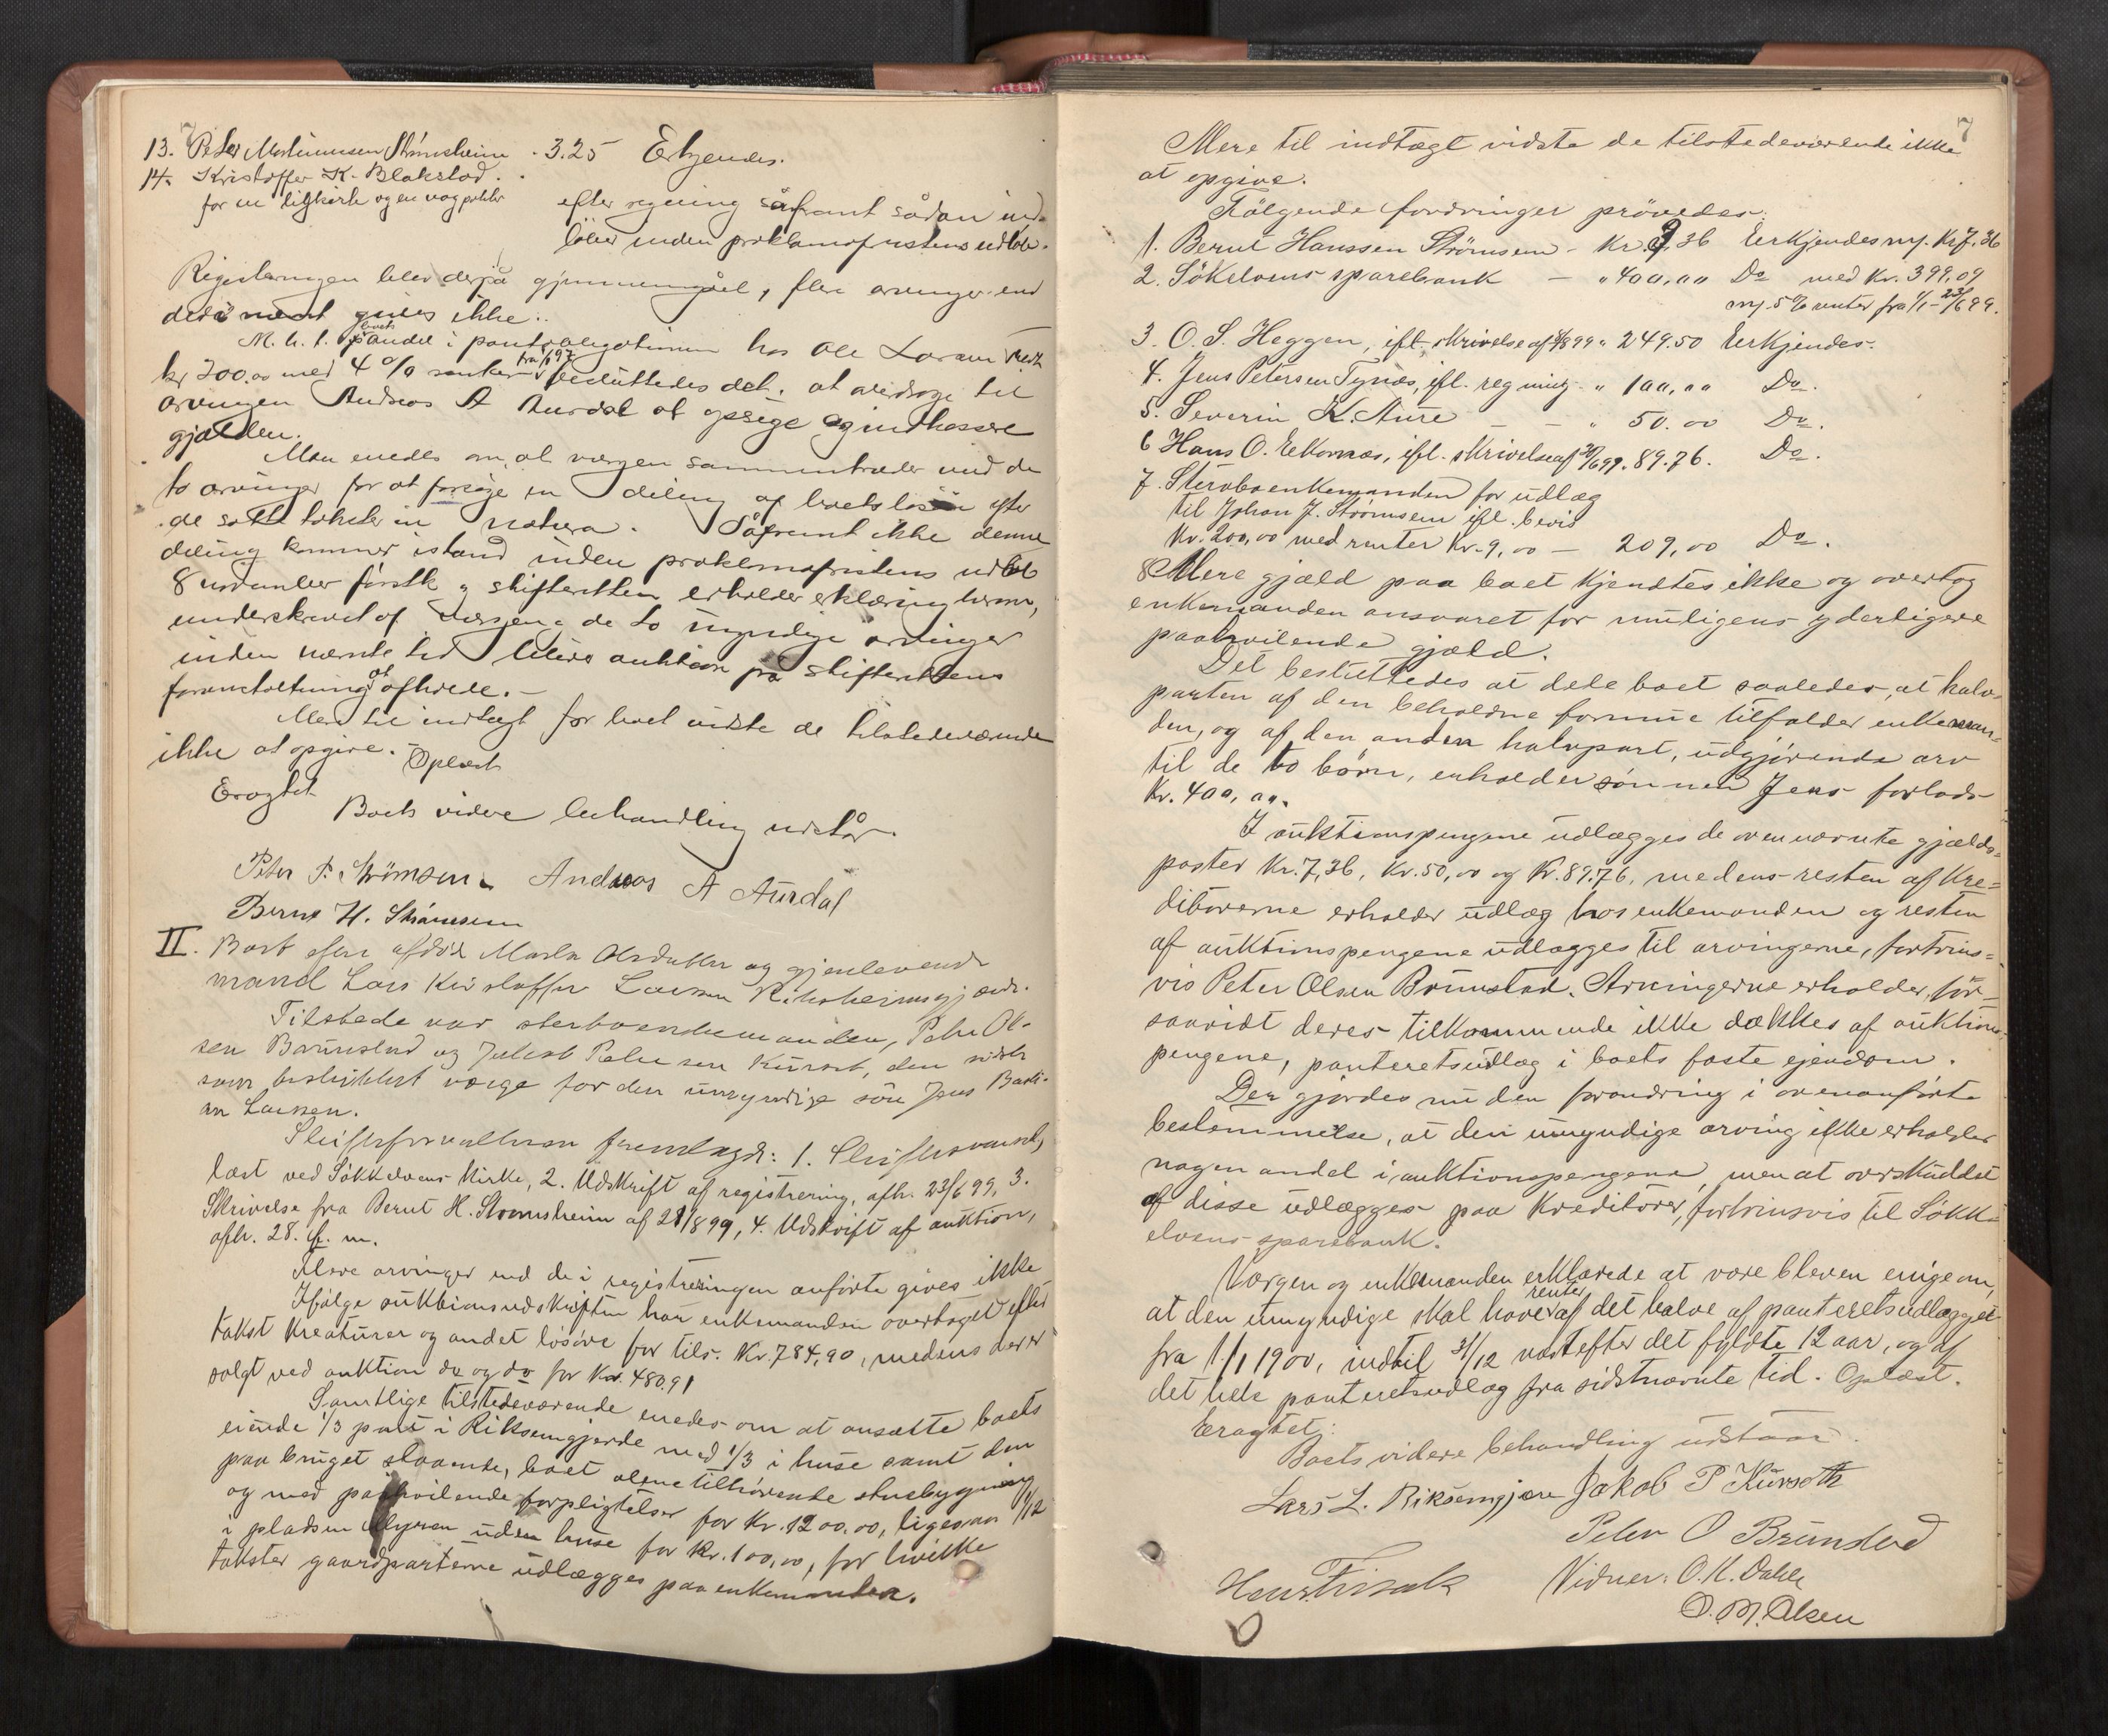 13. Peter Martinussen Strömsheim . 3.25 Erkjendes.
14. Kristoffer K. Blakstad . .
for en ligkiste og en vog
efter regning såfremt sådan ind-
löber inden proklamafristens udlöb.
Registeringen blev derpå gjennemgået, flere arvinger end
de nævnt gives ikke.
M. h. t. boets andel i pantobligationen hos Ole Larsen
kr 200.00 med 4 % renter fra besluttedes det at overdrage til
arvingen Andreas A Aurdal at opsige og indkassere
gjælden.
Man enedes om, at værgen sammentræder med de
to arvinger for at forsöge en deling af boets lösöre efter
de satte takster in natura. Såfremt ikke denne
deling kommer istand inden proklamafristens udlöb
8 november förstk. og skifteretten erholder erklæring herom,
underskrevet af værgen og de to myndige arvinger
inden nævnte tid bliver auktion på skifterettens
foranstaltning at afholde. –
Mere til indtægt for boet vidste de tilstedeværende
ikke at opgive. – Oplæst
Eragtet
Boets videre behandling udstår.
Peter P. Strömsem. Andreas A Aurdal
Bernt H. Strömsem
II. Boet efter afdöde Marta Olsdatter og gjenlevende
mand Lars Kristoffer Larsen Riksheimsgjærde.
Tilstede var sterboenkemanden, Peter Ol-
sen Brunstad og Jakob Petersen Kurset, den sidste
som beskikket værge for den umyndige sön Jens Basti-
an Larsen.
Skifteforvalteren fremlagde: 1. Skiftesvarsel,
læst ved Sökkelvens kirke, 2. Udskrift af registrering, afh. 23/6 99, 3.
Skrivelse fra Bernt H. Strømsheim af 21/8 99, 4. Udskrift af auktion,
afh. 28. f. m.
Flere arvinger end de i registreringen anförte gives ikke
Ifölge auktionsudskriften har enkemanden overtaget efter
takst kreaturer og andet lösöre for tils. Kr. 784,90, medens der er
solgt ved auktion do og do for Kr. 480,91
Samtlige tilstedeværende enedes om at ansætte boets
eiende 1/3 part i Riksemgjerde med 1/3 i huse samt den
paa bruget staaende, boet alene tilhørende stuebygning
og med paahvilende forpligtelser for Kr. 1200.00, ligesom 1/12
i pladsen Myren uden huse for kr. 100,00, for hvilke
takster gaardparterne udlægges paa enkemanden.
7
Mere til indtægt vidste de tilstedeværende ikke
at opgive.
Fölgende fordringer prövedes:
1. Bernt Hanssen Strömsem – Kr. 9,36 Erkjendes m/. Kr 7,36
2. Sökelvens sparebank – " 400,00 Do med Kr. 399,09
m/. 5 % renter fra 1/1 – 23/6 99.
3. O. S. Heggen, ifl. skrivelse af /8 99 " 249.50 Erkjendes.
4. Jens Petersen Tynæs, ifl. regning " 100,00 Do.
5. Severin K. Aure – – " 50.00 Do.
6 Hans O. Ekornæs, ifl. skrivelse af 30/6 99. 89.76. Do.
7. Sterboenkemanden for udlæg
til Johan J. Strømsem ifl. bevis
Kr. 200,00 med renter Kr. 9,00 – 209,00 Do.
8 Mere gjæld paa boet kjendtes ikke og overtog
enkemanden ansvaret for muligens yderligere
paahvilende gjæld.
Det besluttedes at dele boet saaledes, at halv-
parten af den beholdne formue tilfalder enkeman-
den, og af den anden halvpart, udgjørende arv
til de to börn, erholder sönnen Jens forlods
Kr. 400,00.
I auktionspengene udlægges de ovennævnte gjælds-
poster Kr. 7,36, Kr. 50,00 og Kr. 89.76, medens resten af kre-
ditorerne erholder udlæg hos enkemanden og resten
af auktionspengene udlægges til arvingerne, fortrins-
vis Peter Olsen Brunstad. Arvingerne erholder, for-
saavidt deres tilkommende ikke dækkes af auktions-
pengene, panteretsudlæg i boets faste ejendom.
Der gjordes nu den forandring i ovenanførte
bestemmelse, at den umyndige arving ikke erholder
nogen andel i auktionspengene, men at overskuddet
af disse udlægges paa kreditorer, fortrinsvis til Sökk-
elvens sparebank.
Værgen og enkemanden erklærede at være bleven enige om,
at den umyndige skal have renter af det halve af panteretsudlægget
fra 1/1 1900, indtil 31/12 næst efter det fyldte 12 aar, og af
det hele panteretsudlæg fra sidstnævnte tid. Oplæst.
Eragtet:
Boets videre behandling udstaar.
Lars L. Riksemgjære Jakob P Kurseth
Peter O Brunstad
Vidner: O. K. Dahle
O. M. Olsen